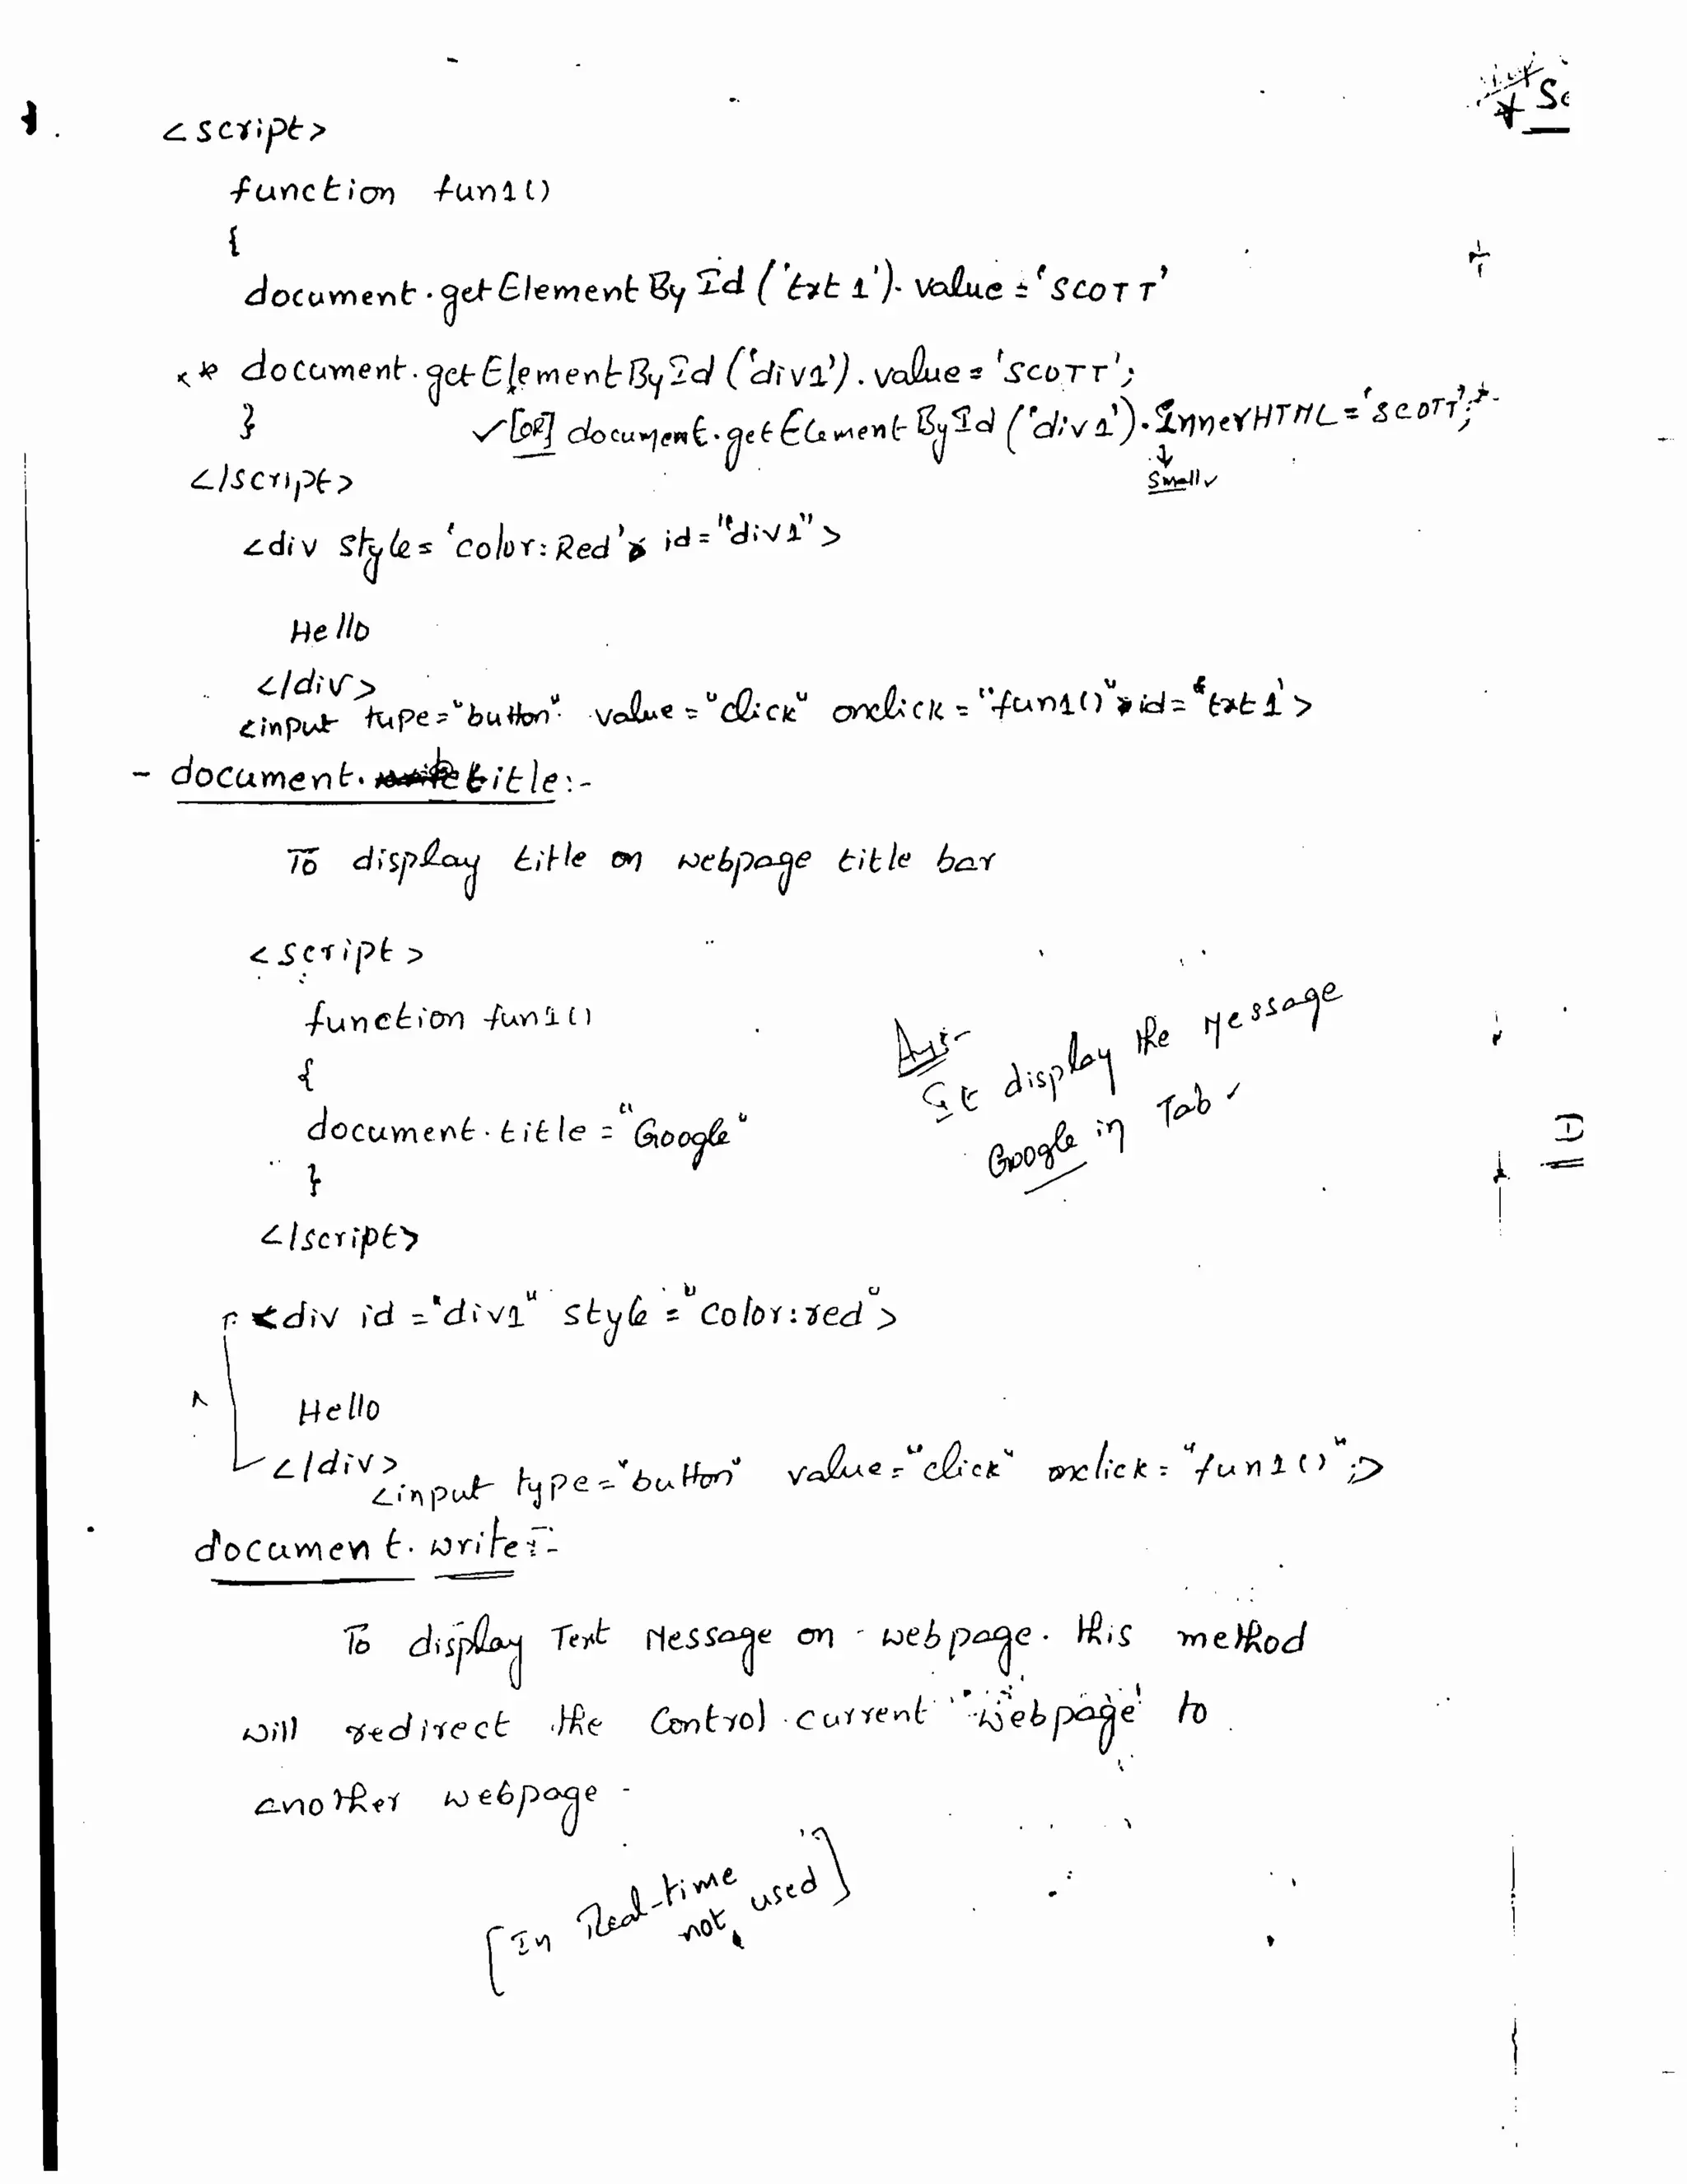 <script>
function fun1()
{
document.getElementById('txt1').value='SCOTT'
** document.getElementById('div1').value='SCOTT';
}
✓[OR] document.getElementById('div1').InnerHTML='SCOTT';
↓
Small✓
</script>
<div style='color:Red' id="div1">
Hello
</div>
<input type="button" value="click" onclick="fun1()" id='txt1'>
- document.title:-
To display title on webpage title bar
<script>
function fun1()
{
document.title="Google"
}
</script>
It display the Message
Google in Tab ✓
<div id="div1" style="color:red">
Hello
</div>
<input type="button" value="click" onclick="fun1()";>
document.write:-
To display Text Message on webpage. this method
will redirect the Control current webpage to
another webpage.
[In Real-time
not used]